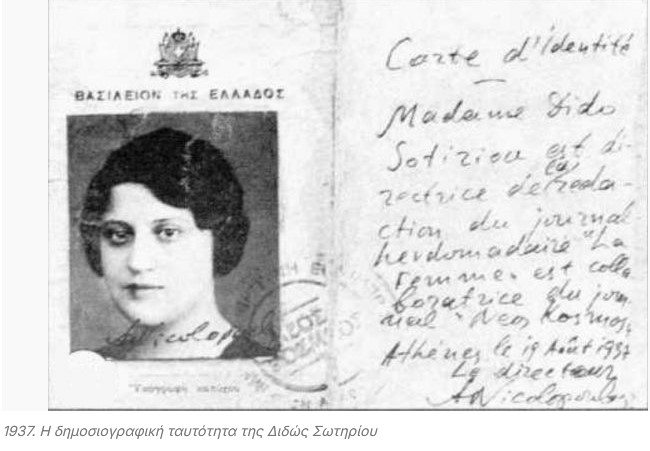 ΒΑΣΙΛΕΙΟΝ ΤΗΣ ΕΛΛΑΔΟΣ
ΝΕΟΣ
ΚΟΣΜΟΣ
Ὑπογραφὴ κατόχου
Carte d'identité
Madame Dido
Sotiriou est di-
rectrice de la reda-
ction du journal
hevdomadaire "La
Femme" est colla
boratrice du jour
nal "Neos Kosmos"
Athènes le 19 Août 1937
Le directeur
ANicolopoulos
1937. Η δημοσιογραφική ταυτότητα της Διδώς Σωτηρίου